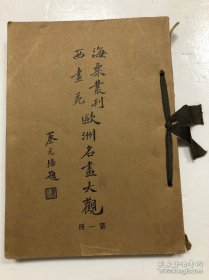 海粟叢刊
西畫苑
歐洲名畫大觀
第一冊
蔡元培題